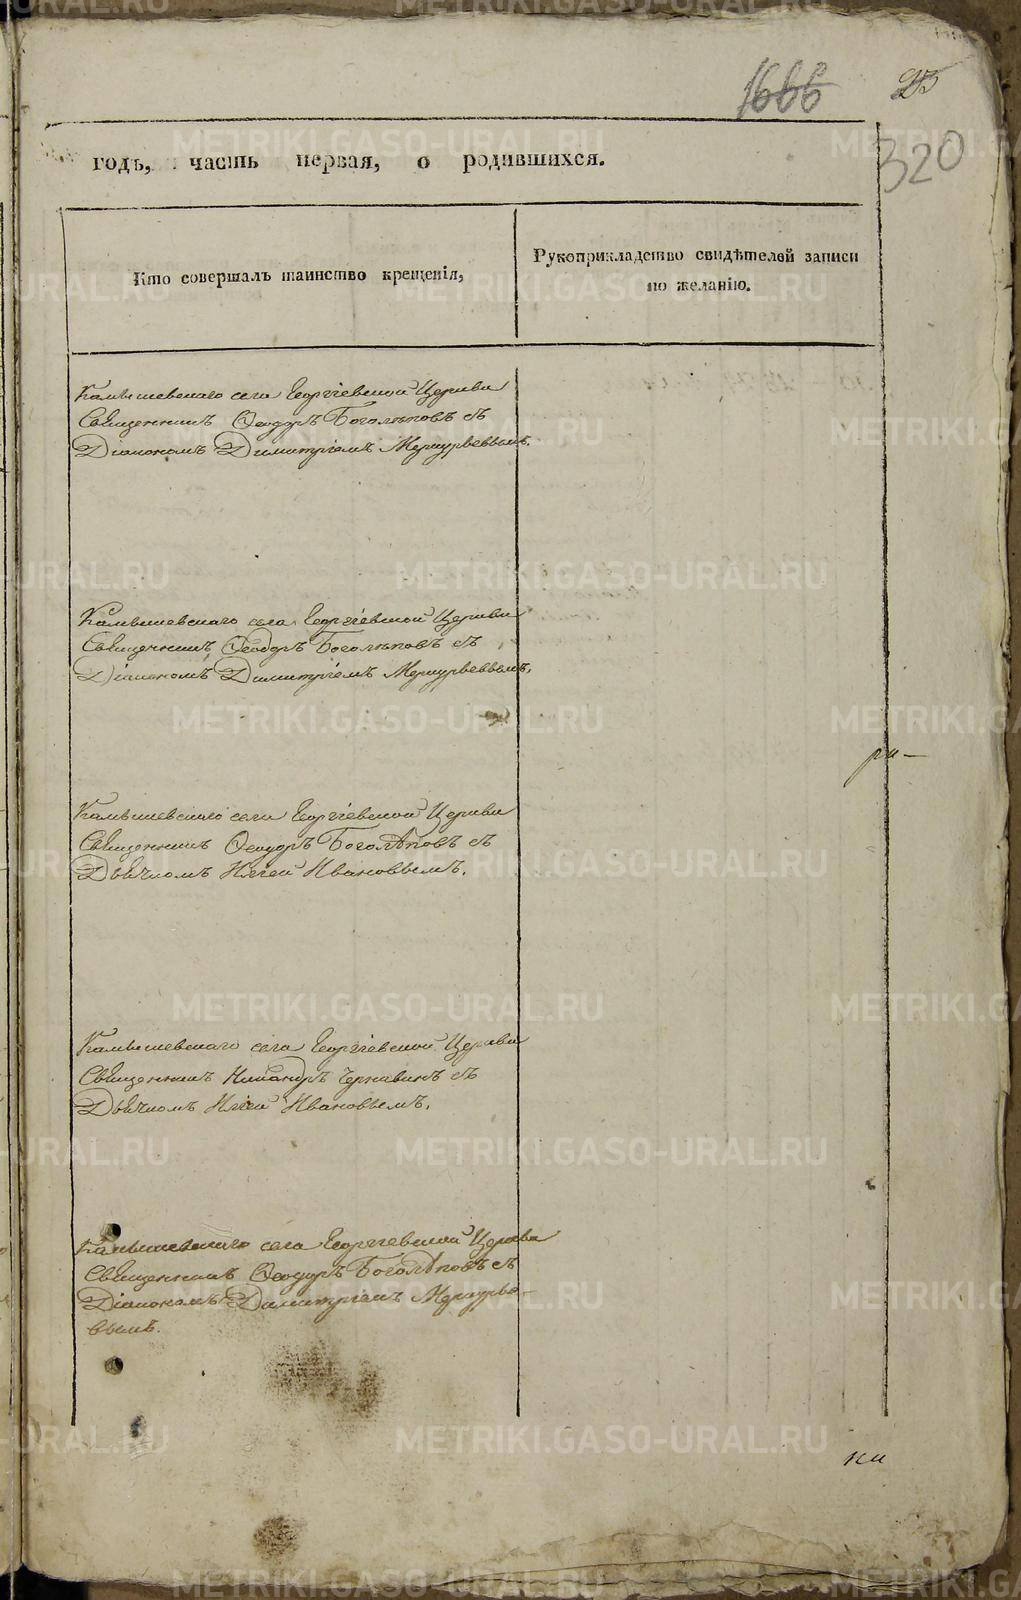 1666
25
320
годъ, часть первая, о родившихся.
Кто совершалъ таинство крещенія,
Рукоприкладство свидѣтелей записи
по желанію.
Камышевскаго села Георгіевской Церкви
Священникъ Ѳеодоръ Боголѣповъ съ
Діакономъ Димитріемъ Меркурьевымъ.
Камышевскаго села Георгіевской Церкви
Священникъ Ѳеодоръ Боголѣповъ съ
Діакономъ Димитріемъ Меркурьевымъ.
ри—
Камышевскаго села Георгіевской Церкви
Священникъ Ѳеодоръ Боголѣповъ съ
Дьячкомъ Иліей Ивановымъ.
Камышевскаго села Георгіевской Церкви
Священникъ Никандръ Чернавинъ съ
Дьячкомъ Иліей Ивановымъ.
Камышевскаго села Георгіевской Церкви
Священникъ Ѳеодоръ Боголѣповъ съ
Діакономъ Димитріемъ Меркурье-
вымъ.
ки
METRIKI.GASO-URAL.RU